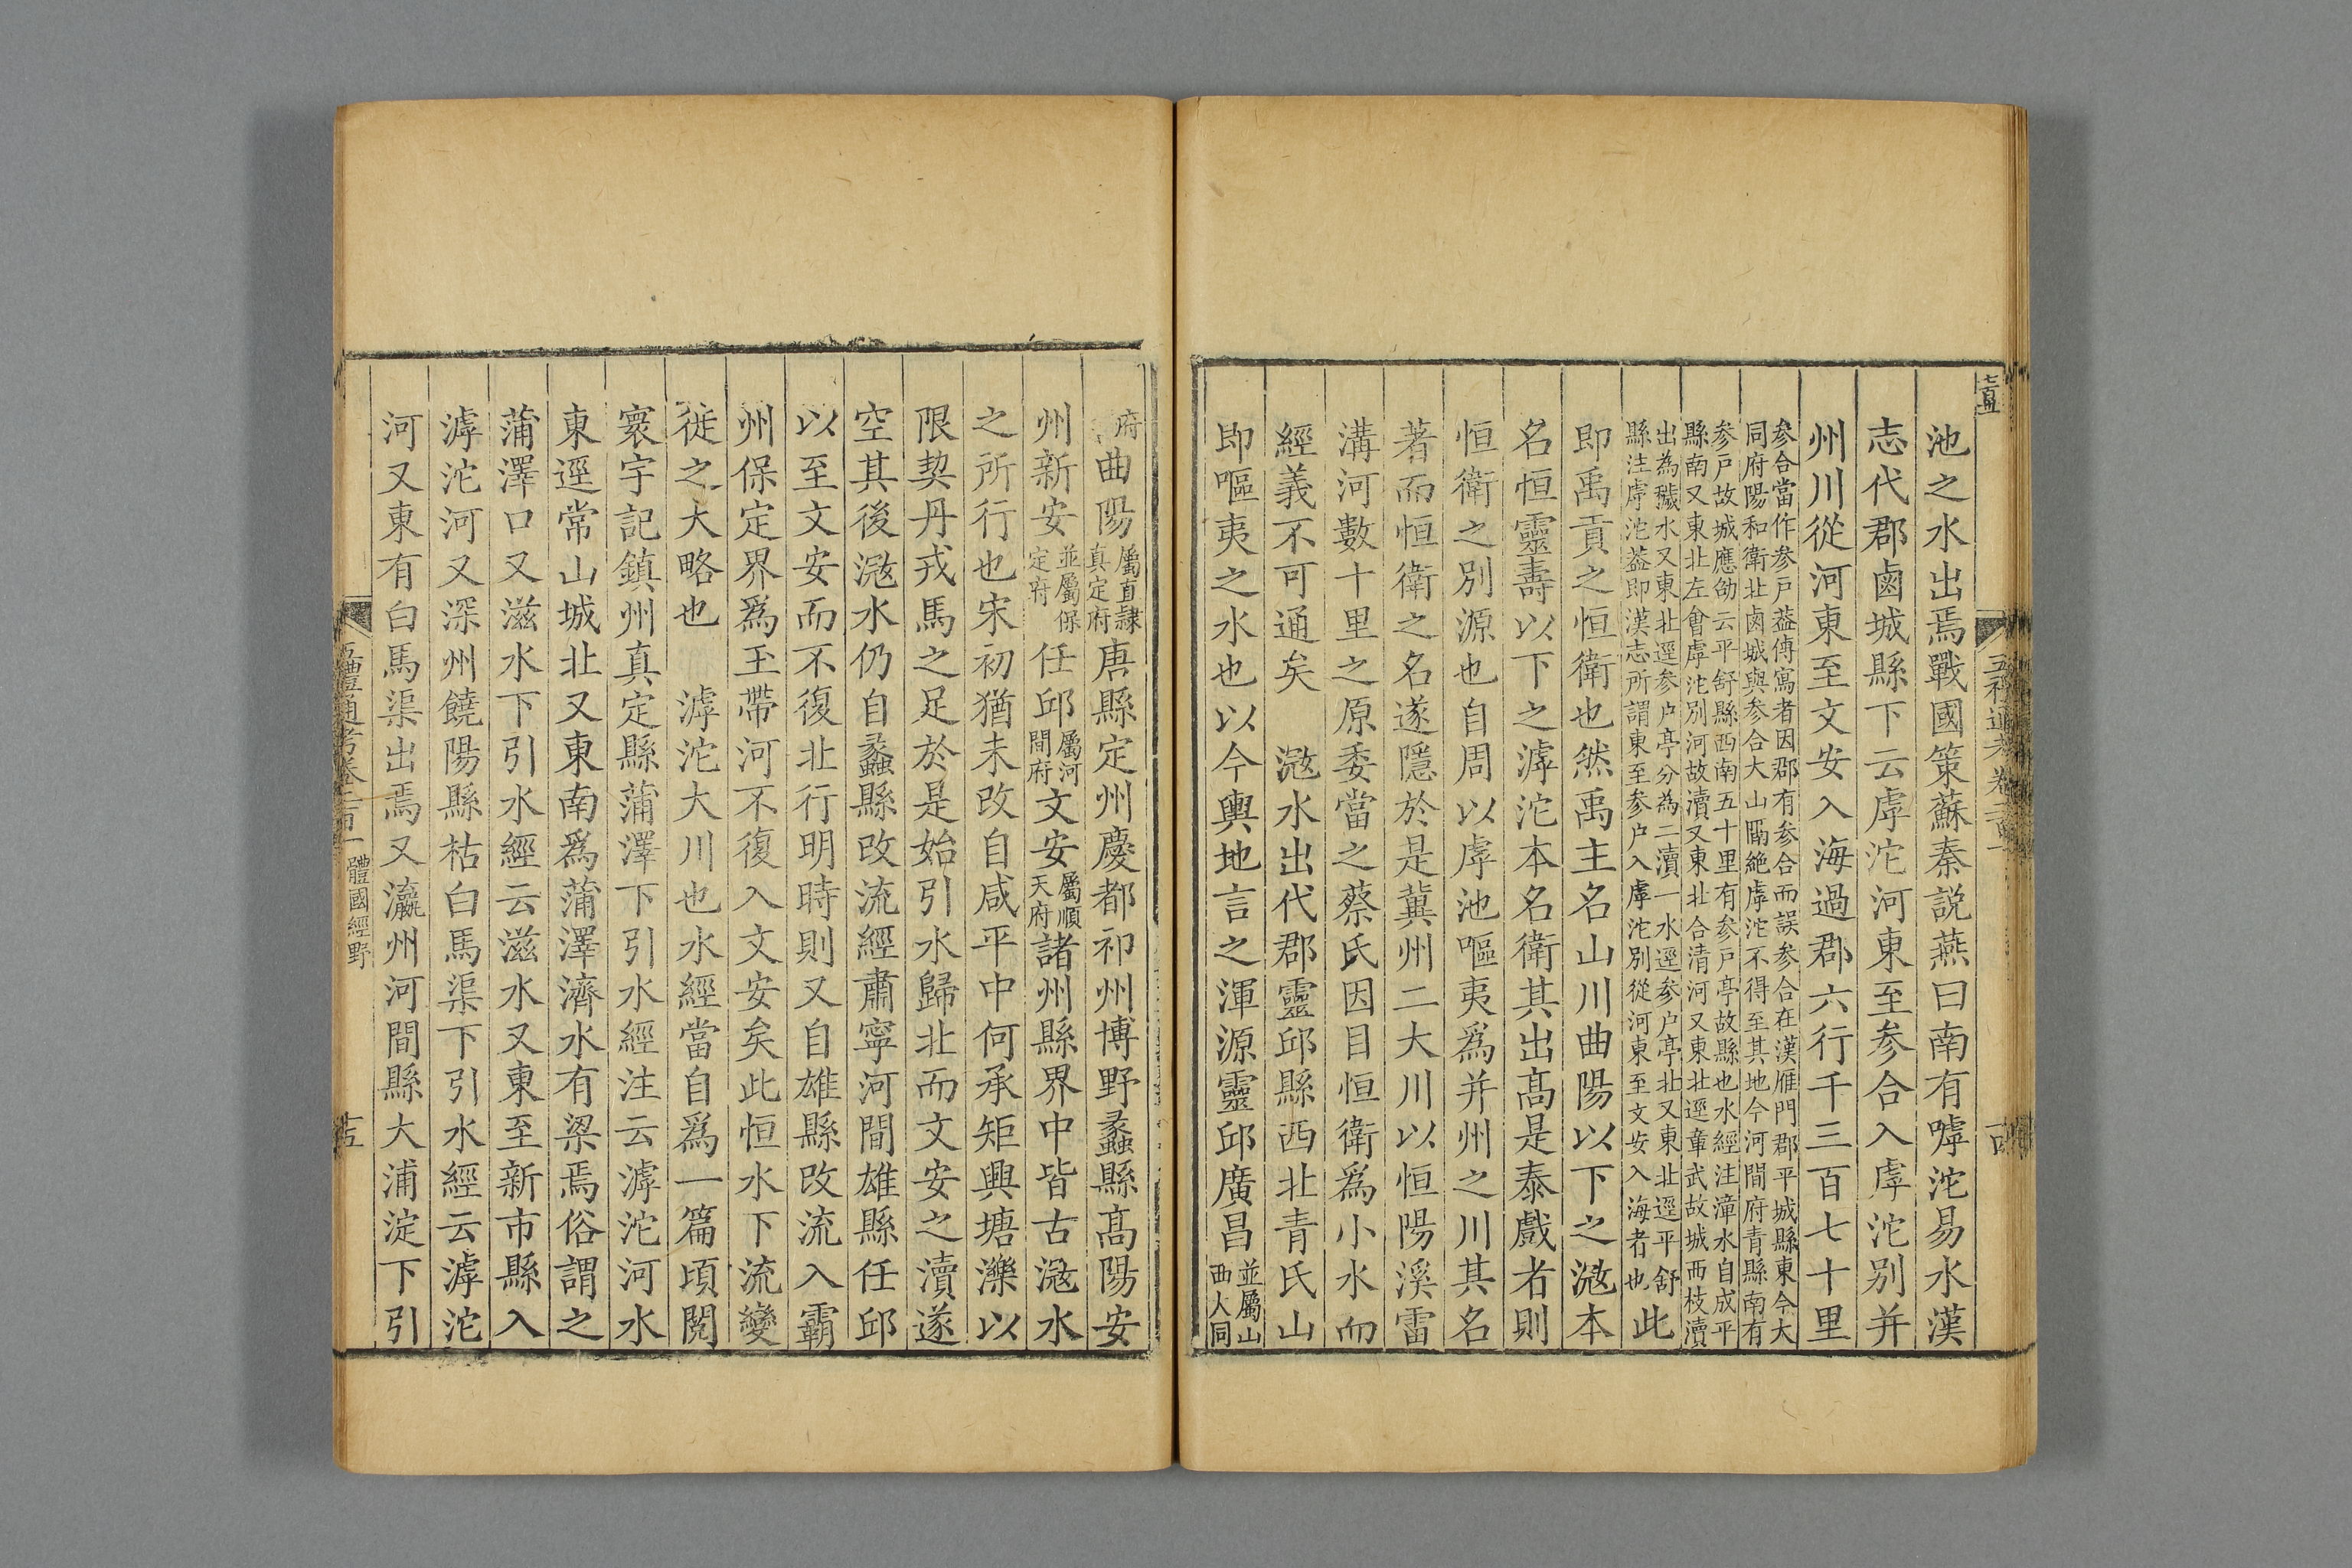 池之水出焉戰國策蘇秦説燕曰南有嘑沱易水漢
志代郡鹵城縣下云虖沱河東至参合入虖沱别并
州川從河東至文安入海過郡六行千三百七十里
参合當作参戸葢傳寫者因郡有参合而誤参合在漢雁門郡平城縣東今大
同府陽和衛北鹵城與参合大山隔絶虖沱不得至其地今河間府青縣南有
参戸故城應劭云平舒縣西南五十里有参戸亭故縣也水經注漳水自成平
縣南又東北左會虖沱别河故瀆又東北合清河又東北逕章武故城西枝瀆
出為濊水又東北逕参户亭分為二瀆一水逕参户亭北又東北逕平舒
縣注虖沱葢即漢志所謂東至参户入虖沱别從河東至文安入海者也此
即禹貢之恒衛也然禹主名山川曲陽以下之滱本
名恒靈壽以下之滹沱本名衛其出高是泰戲者則
恒衛之别源也自周以虖池嘔夷爲并州之川其名
著而恒衛之名遂隱於是冀州二大川以恒陽溪雷
溝河數十里之原委當之蔡氏因目恒衛爲小水而
經義不可通矣　滱水出代郡靈邱縣西北青氏山
即嘔夷之水也以今輿地言之渾源靈邱廣昌並屬山
西大同
五禮通考卷二百一
府曲陽屬直隷
真定府唐縣定州慶都祁州博野蠡縣髙陽安
州新安並屬保
定府任邱屬河
間府文安屬順
天府諸州縣界中皆古滱水
之所行也宋初猶未改自咸平中何承矩興塘濼以
限契丹戎馬之足於是始引水歸北而文安之瀆遂
空其後滱水仍自蠡縣改流經肅寧河間雄縣任邱
以至文安而不復北行明時則又自雄縣改流入霸
州保定界爲玉帶河不復入文安矣此恒水下流變
徙之大略也　滹沱大川也水經當自爲一篇頃閲
寰宇記鎮州真定縣蒲澤下引水經注云滹沱河水
東逕常山城北又東南爲蒲澤濟水有梁焉俗謂之
蒲澤口又滋水下引水經云滋水又東至新市縣入
滹沱河又深州饒陽縣枯白馬渠下引水經云滹沱
河又東有白馬渠出焉又瀛州河間縣大浦淀下引
五禮通考卷二百一
體國經野